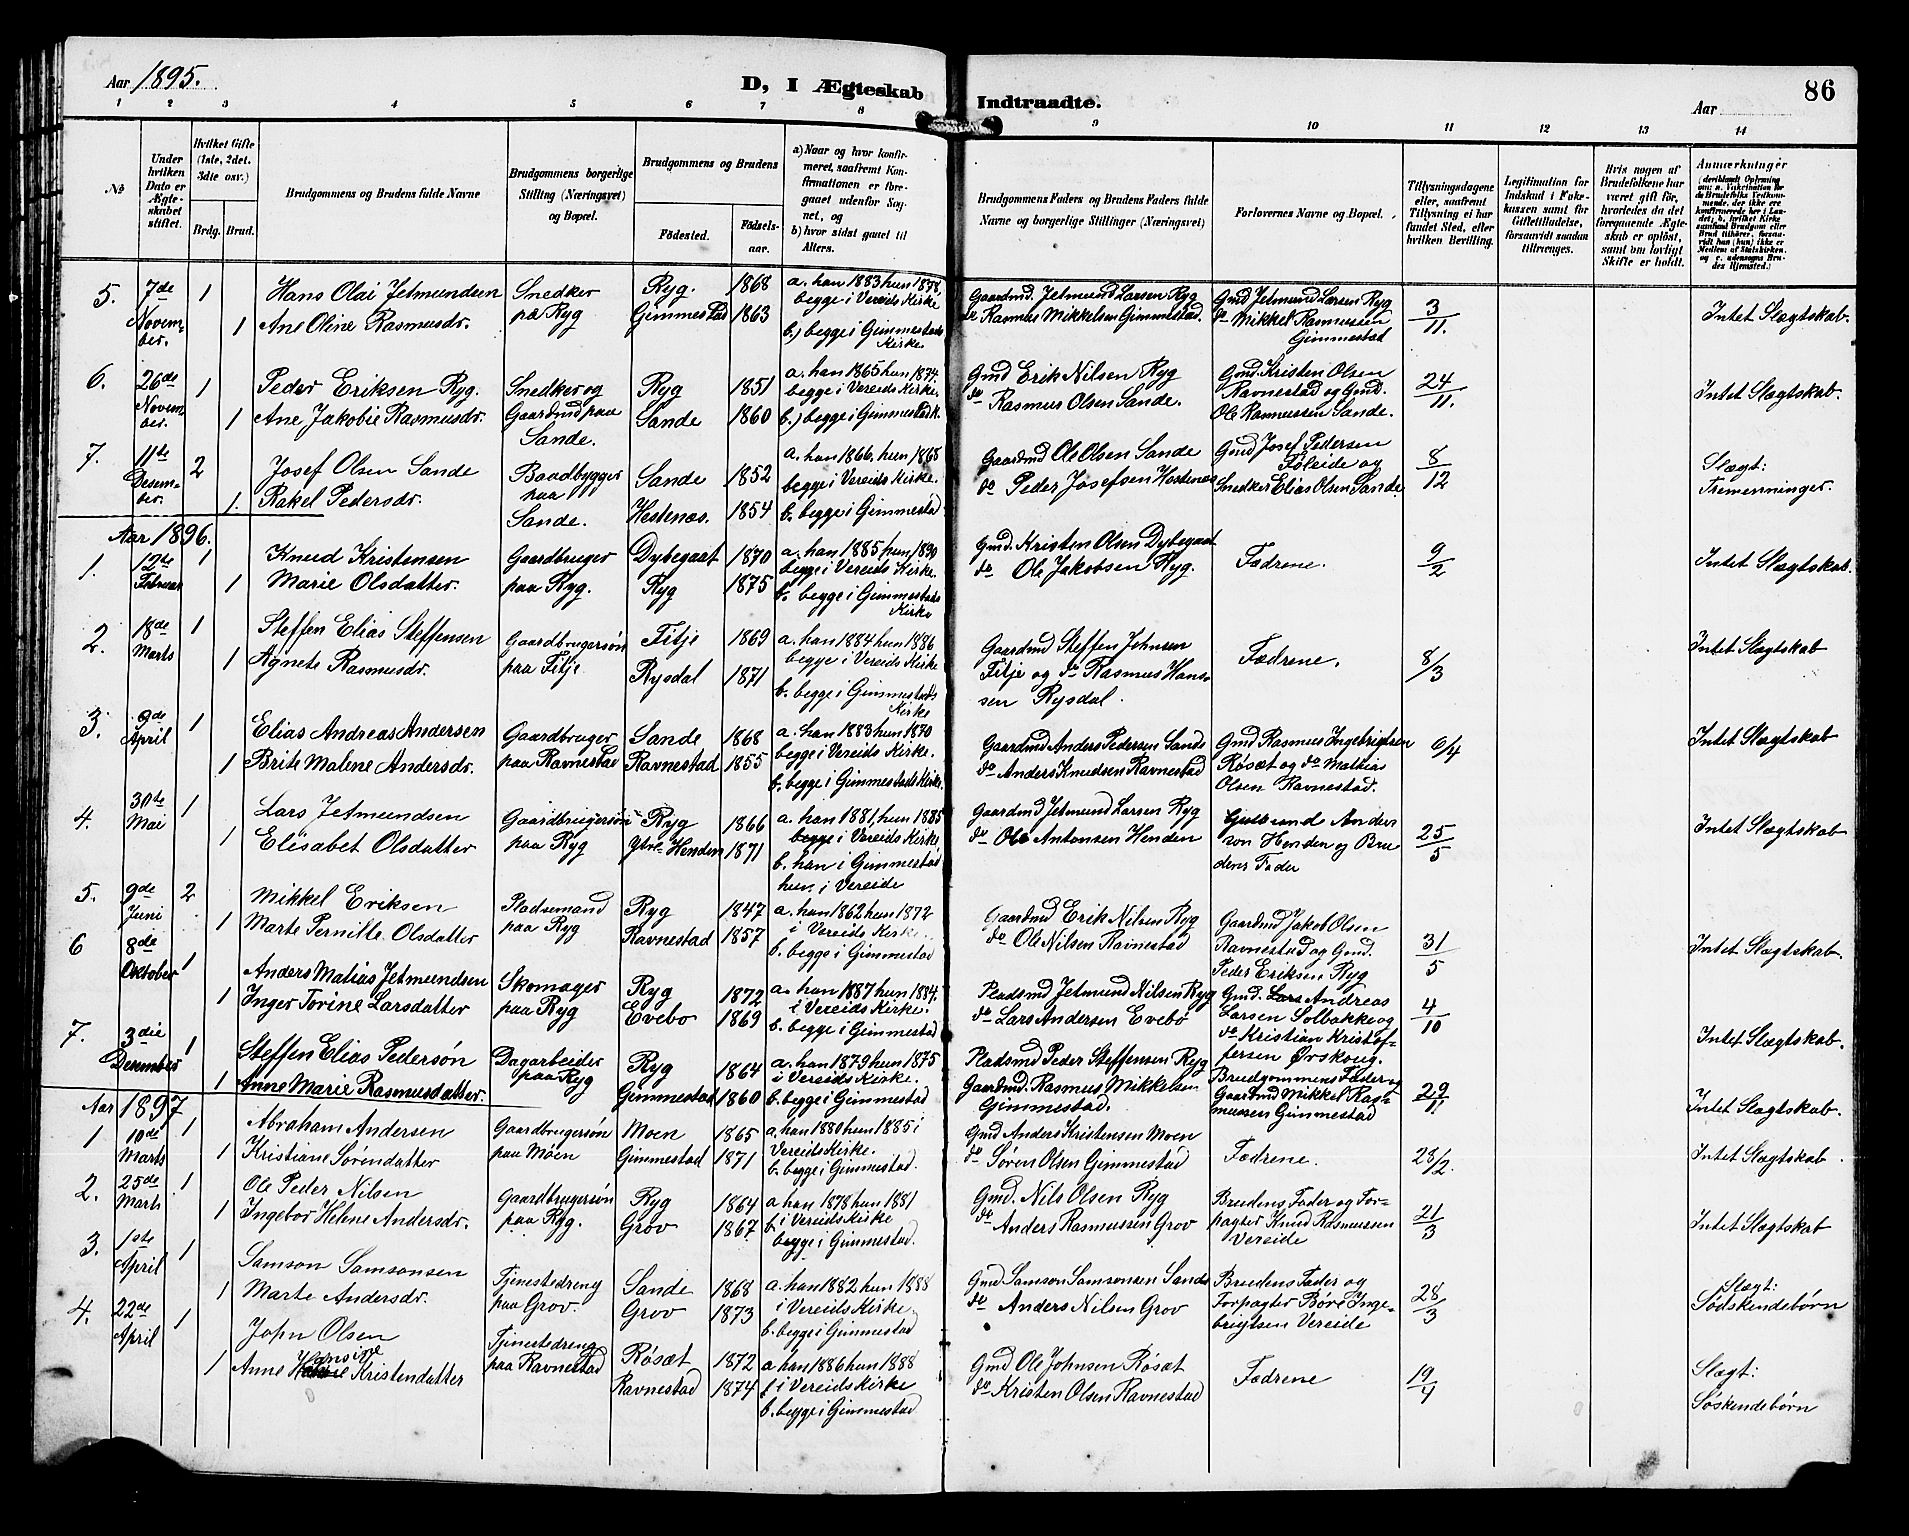 Aar 1895.
D, I Ægteskab
Indtraadte.
Aar
86
1 2 3 4 5 6 7 8 9 10 11 12 13 14
No
Under hvilken Dato er Ægteskabet stiftet.
Hvilket Gifte (1ste, 2det, 3die osv.)
Brdg. Brud.
Brudgommens og Brudens fulde Navne
Brudgommens borgerlige Stilling (Næringsvei) og Bopæl.
Brudgommens og Brudens
Fødested.
Fødselsaar.
a) Naar og hvor konfirmeret, saafremt Konfirmationen er foregaaet udenfor Sognet, og
b) hvor sidst gaaet til Alters.
Brudgommens Faders og Brudens Faders fulde Navne og borgerlige Stillinger (Næringsvei)
Forlovernes Navne og Bopæl.
Tillysningsdagene eller, saafremt Tillysning ei har fundet Sted, efter hvilken Bevilling.
Legitimation for Indskud i Fokekassen samt for Giftetilladelse, forsaavidt saadan tiltrænges.
Hvis nogen af Brudefolkene har været gift før, hvorledes da det foregaaende Ægteskab er opløst, samt om lovligt Skifte er holdt.
Anmærkninger
5. 7de November. 1 Hans Olai Jetmundsen Snedker paa Ryg Ryg. 1868 a. han 1883 hun 1878, begge i Vereids Kirke Gaardmd. Jetmund Larsen Ryg Gmd Jetmund Larsen Ryg 3/11. Intet Slægtskab.
1 Ane Oline Rasmusdr. Gimmestad 1863 b.) begge i Gimmestads Kirke. do Rasmus Mikkelsen Gimmestad. do Mikkel Rasmussen Gimmestad
6. 26de November. 1 Peder Eriksen Ryg. Snedker og Gaardmd paa Sande. Ryg 1851 a. han 1865 hun 1874. begge i Vereids Kirke. Gmd Erik Nilsen Ryg Gmd. Kristen Olsen Ravnestad og Gmd. Ole Rasmussen Sande. 24/11. Intet Slægtskab.
1 Ane Jakobie Rasmusdr. Sande 1860 b.) begge i Gimmestad K. do Rasmus Olsen Sande.
7. 11te Desember. 2 Josef Olsen Sande Baadbygger paa Sande. Sande 1852 a. han 1866, hun 1865 begge i Vereids Kirke. Gaardmd Ole Olsen Sande Gmd Josef Pedersen Føleide og Snedker Elias Olsen Sande. 8/12 Slægt: Tremenninger.
1. Rakel Pedersdr. Hestenæs. 1854 b. begge i Gimmestad do Peder Josefsen Hestenæs
Aar 1896.
1. 12te Februar 1 Knud Kristensen Gaardbruger paa Ryg. Dybegaat 1870 a. han 1885, hun 1890 begge i Vereids Kirke. Gmd. Kristen Olsen Dybegaat Fædrene. 9/2 Intet Slægtskab.
1 Marie Olsdatter. Ryg 1875 b. begge i Gimmestads Kirke do Ole Jakobsen Ryg.
2. 18de Marts 1 Steffen Elias Steffensen Gaardbrugersøn paa Fitje. Fitje 1869 a. han 1884 hun 1886 begge i Vereids Kirke Gaardmd Steffen Johnsen Fitje og do Rasmus Hanssen Rysdal. Fædrene. 8/3 Intet Slægtskab
1 Agnete Rasmusdr. Rysdal 1871 b. begge i Gimmestads Kirke
3. 9de April 1 Elias Andreas Andersen Gaardbruger paa Ravnestad Sande 1868 a. han 1883 hun 1870 begge i Vereids Kirke. Gaardmd Anders Pedersen Sande Gmd Rasmus Ingebrigtsen Røsæt og do Mathias Olsen Ravnestad. 6/4 Intet Slægtskab
1 Brite Malene Andersdr. Ravnestad 1855 b. begge i Gimmestads Kirke. do Anders Knudsen Ravnestad
4. 30te Mai 1 Lars Jetmundsen Gaardbrugersøn paa Ryg Ryg 1866 a. han 1881, hun 1885 begge i Vereids Kirke. Gaardmd Jetmund Larsen Ryg 25/5 Intet Slægtskab
1 Elisabet Olsdatter Ytre Henden 1871 b. han i Gimmestad hun i Vereide do Ole Antonsen Henden Henden og Brudens Fader
5. 9de Juni 2 Mikkel Eriksen Pladsemand paa Ryg Ryg 1847 a. han 1862 hun 1872 i Vereids Kirke. Gaardmd Erik Nilsen Ryg Gaardmd Jakob Olsen Ravnestad og Gmd. Peder Eriksen Ryg 31/5 Intet Slægtskab.
1 Marte Pernille Olsdatter Ravnestad 1857 b. begge i Gimmestad do Ole Nilsen Ravnestad
6 8de Oktober 1 Anders Matias Jetmundsen Skomager paa Ryg Ryg 1872 a. han 1887 hun 1884. i Vereids Kirke. Pladsmd Jetmund Nilsen Ryg Gmd. Lars Andreas Larsen Solbakke og do Kristian Kristoffersen Ørskoug. 4/10 Intet Slægtskab.
1 Inger Torine Larsdatter Evebø 1869 b. begge i Gimmestad do Lars Andersen Evebø
7. 3die Desember 1 Steffen Elias Pedersøn Dagarbeider paa Ryg Ryg 1864 a. han 1879 hun 1875 i Vereids Kirke. Pladsmd Peder Steffensen Ryg Brudgommens Fader og Gaardmd Mikkel Rasmussen Gimmestad 29/11 Intet Slægtskab.
1 Anne Marie Rasmusdatter. Gimmestad 1860 b. begge i Gimmestad Gaardmd. Rasmus Mikkelsen Gimmestad.
Aar 1897
1 10de Marts 1 Abraham Andersen Gaardbrugersøn paa Moen Moen 1865 a. han 1880 hun 1885 i Vereids Kirke. Gmd Anders Kristensen Moen Fædrene. 28/2. Intet Slægtskab.
1 Kristiane Sørendatter Gimmestad 1871 b. begge i Gimmestad. do Søren Olsen Gimmestad
2. 25de Marts 1 Ole Peder Nilsen Gaardbrugersøn paa Ryg. Ryg 1864 a. han 1878 hun 1881 i Vereids Kirke Gmd. Nils Olsen Ryg Brudens Fader og Forpagter Knud Rasmussen Vereide 21/3 Intet Slægtskab
1 Ingebor Helene Andersdr. Grov 1867 b. begge i Gimmestad. do Anders Rasmussen Grov
3. 1ste April 1 Samson Samsonsen Tjenestedreng paa Grov. Sande 1868 a. han 1882 hun 1888 i Vereids Kirke. Gmd Samson Samsonsen Sande Brudens Fader og Forpagter Børe Ingebrigtsen Vereide 28/3 Slægt: Sødskendebørn
1 Marte Andersdr. Grov 1873 b. begge i Gimmestad do Anders Nilsen Grov
4. 22de April 1 John Olsen Tjenestedreng paa Ravnestad Røsæt 1872 a. han 1886 hun 1888 i Vereids Kirke Gmd Ole Johnsen Røsæt Fædrene 19/4 Slægt: Søskendebørn
1 Anne Hansine Kristendatter Ravnestad 1874 b. begge i Gimmestad do Kristen Olsen Ravnestad